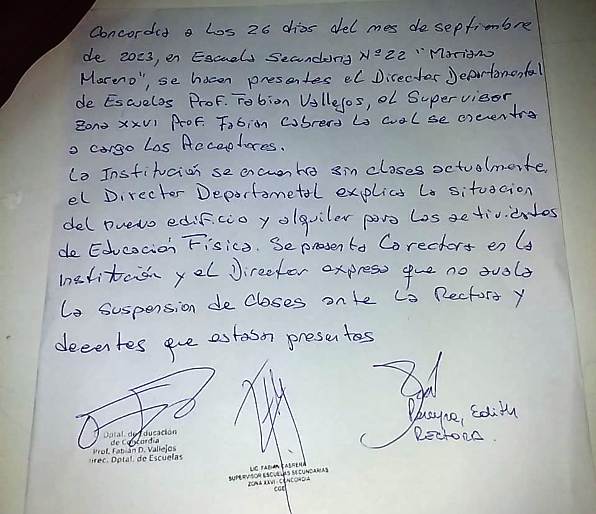 Concordia a los 26 dias del mes de septiembre
de 2023, en Escuela Secundaria Nº22 "Mariano
Moreno", se hacen presentes el Director Departamental
de Escuelas Prof. Fabian Vallejos, el Supervisor
Zona XXVI Prof. Fabian Cabrera la cual se encuentra
a cargo los Acceptores.
La Institución se encuentra sin clases actualmente,
el Director Departametal explica la situacion
del nuevo edificio y alquiler para las actividades
de Educación Física. Se presenta la rectora en la
institución y el Director expresa que no avala
la suspension de clases ante la Rectora y
docentes que estaban presentes
Dptal. de Educación
de Concordia
Prof. Fabián D. Vallejos
Direc. Dptal. de Escuelas
LIC FABIAN CABRERA
SUPERVISOR ESCUELAS SECUNDARIAS
ZONA XXVI - CONCORDIA
CGE
Pereyra, Edith
RECTORA.